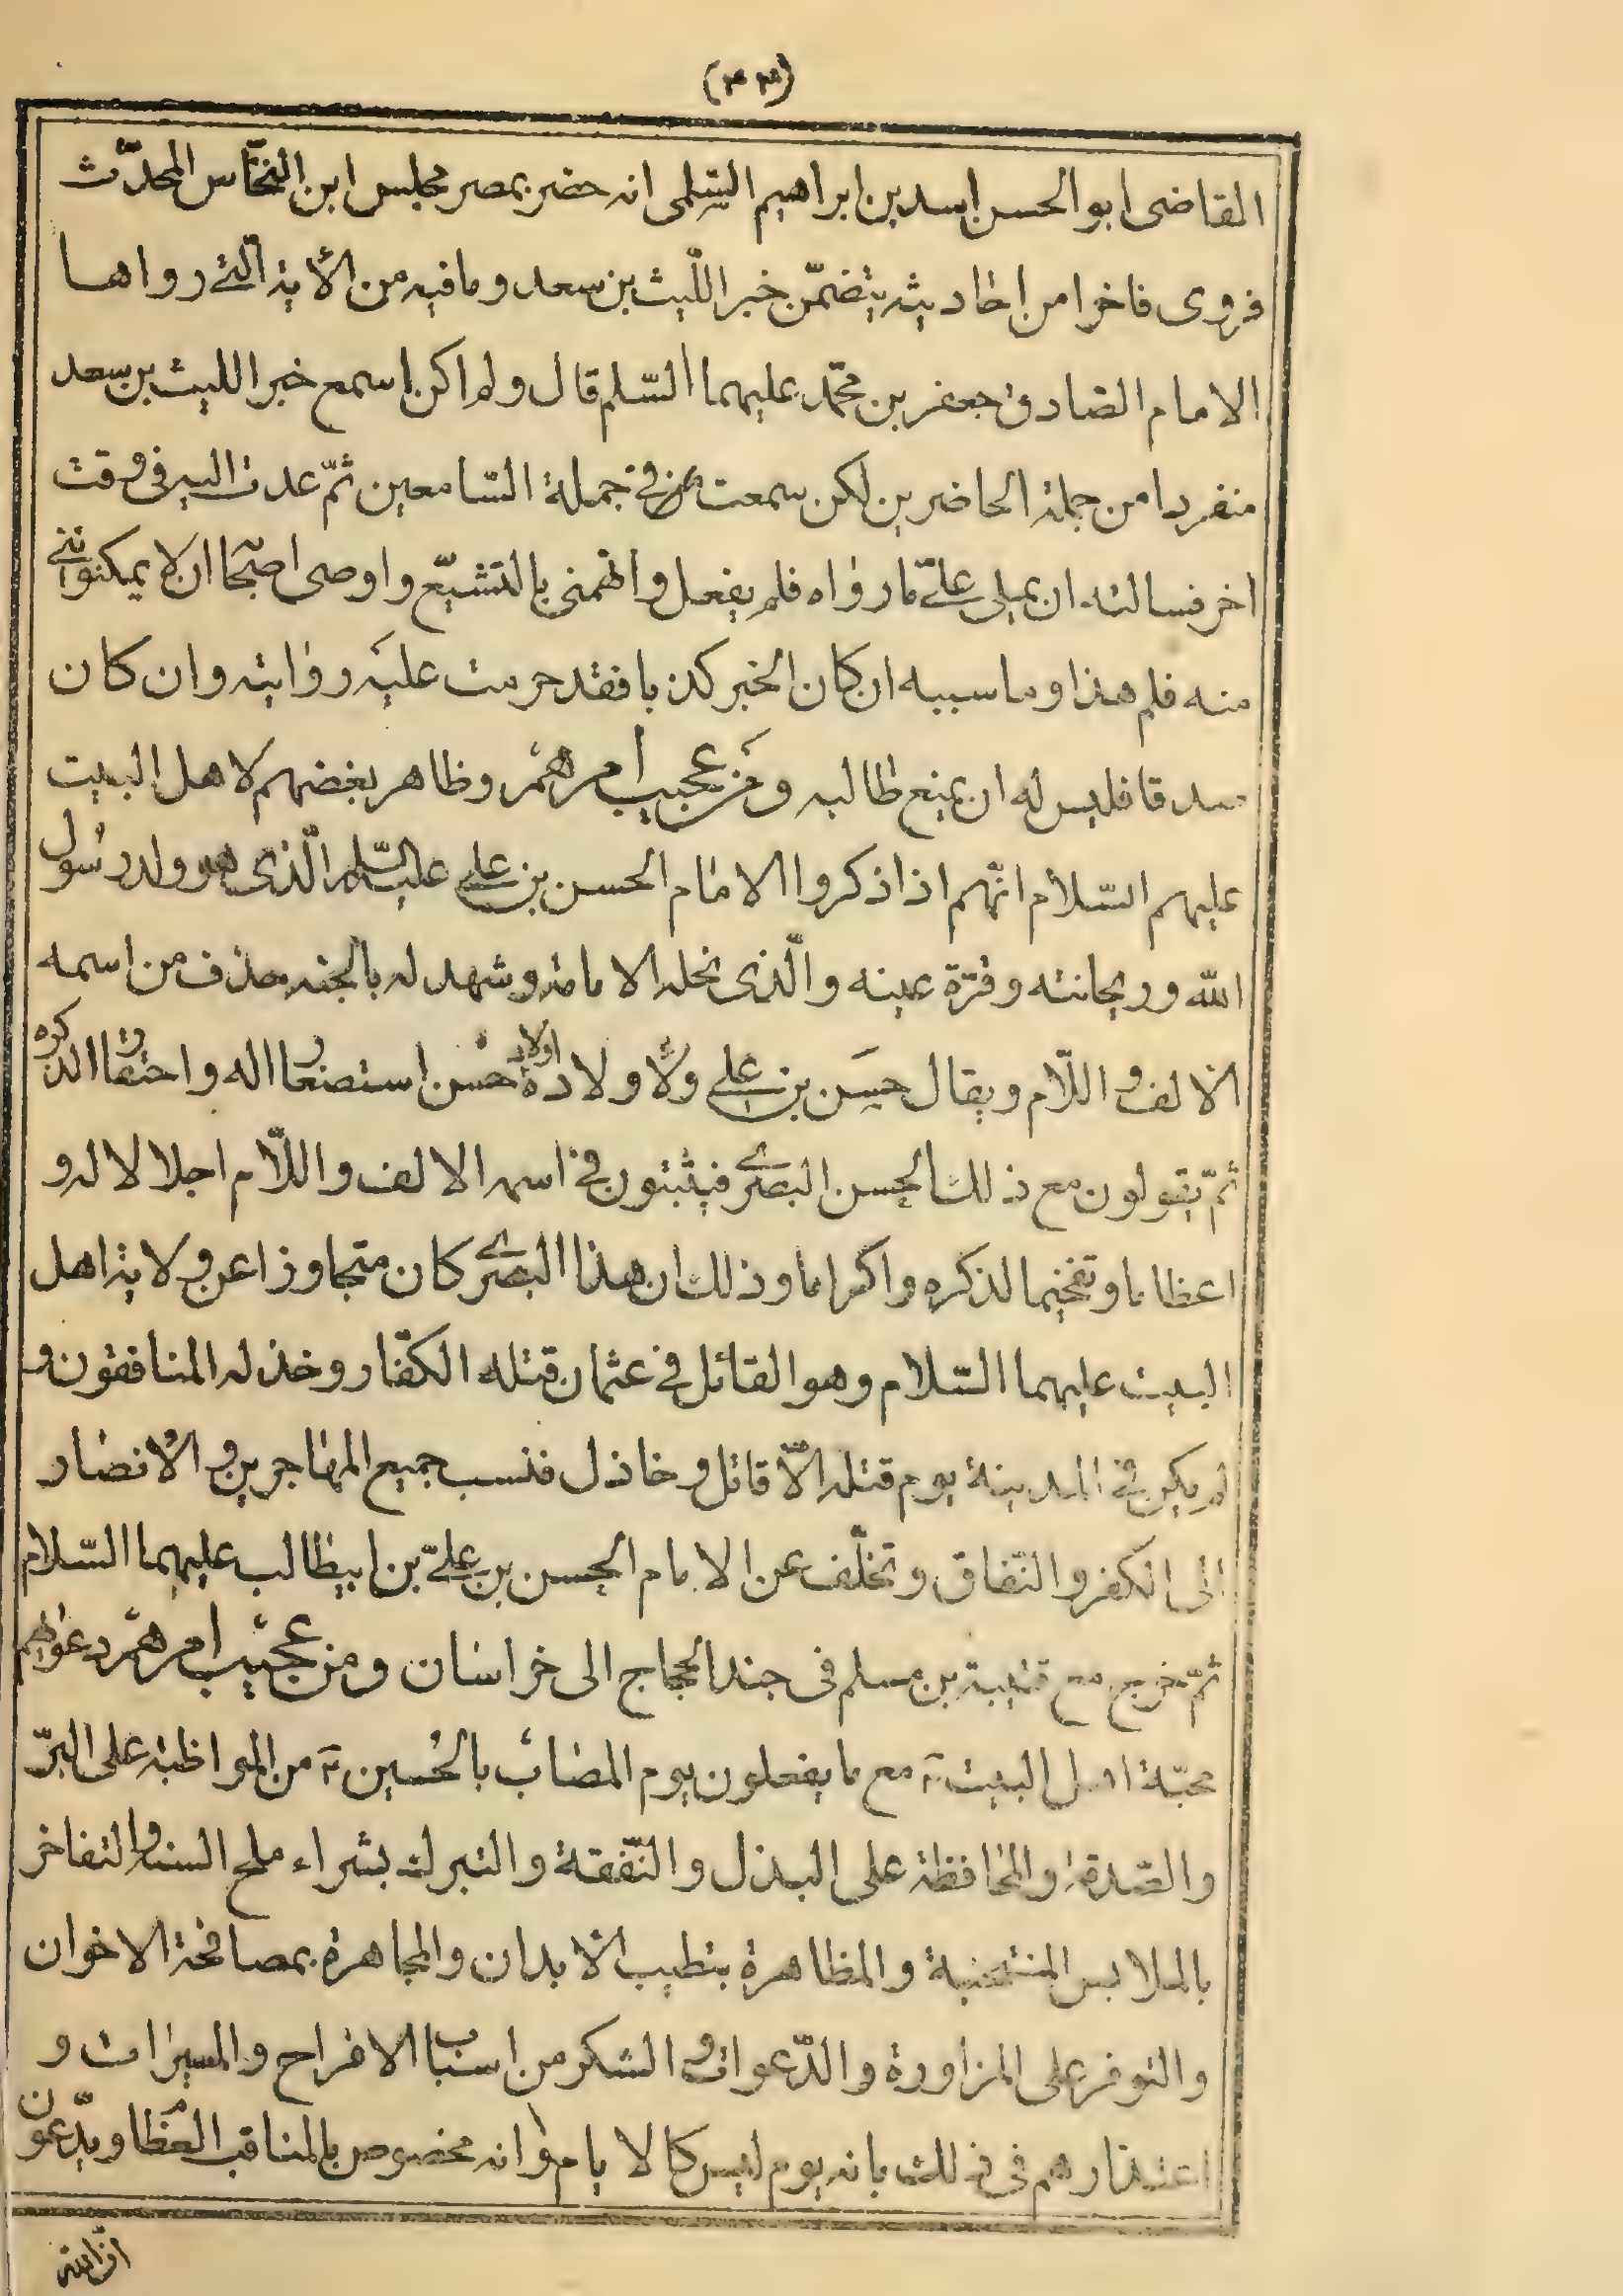 القاضى ابو الحسن اسد بن ابراهيم السّلمى انه حضر بمصر مجلس ابن النحّاس المحدّث
فروى فاخرا من احاديثه يتضمّن خبر اللّيث بن سعد وما فيه من الأية الّتى رواها
الامام الصادق جعفر بن محمّد عليهما السّلم قال ولم اكن اسمع خبر الليث بن سعد
منفردا من جملة الحاضرين لكن سمعت فى جملة السّامعين ثمّ عدت اليه فى وقت
اخر فسالته ان يملى علىّ ما رواه فلم يفعل واتهمنى بالتشيّع واوصى اصحابا ان لا يمكنوننى
منه فلم هذا وما سببه ان كان الخبر كذبا فقد حرمت عليه روايته وان كان
صدقا فليس له ان يمنع طالبه ومن عجيب أمرهم وظاهر بغضهم لاهل البيت
عليهم السّلام انّهم اذا ذكروا الامام الحسن بن على عليه السّلم الّذى هو ولد رسول
الله وريحانته وقرّة عينه والّذى نحله الامامة وشهد له بالجنه حذف من اسمه
الالف واللّام ويقال حسن بن على ولأولاده اولاد حسن استصغارا له واحتقارا لذكره
ثمّ يقولون مع ذلك الحسن البصرى فيثبتون فى اسمه الالف واللّام اجلالا له و
اعظاما وتفخيما لذكره واكراما وذلك ان هذا البصرى كان متجاوزا عن ولاية اهل
البيت عليهما السّلام وهو القائل فى عثمان قتله الكفّار وخذله المنافقون و
لم يكن فى المدينة يوم قتله الّا قاتل وخاذل فنسب جميع المهاجرين والأنصار
الى الكفر والنّفاق وتخلّف عن الامام الحسن بن علىّ بن ابيطالب عليهما السّلام
ثمّ خرج مع قتيبة بن مسلم فى جند الحجاج الى خراسان ومن عجيب امرهم دعواهم
محبّة اهل البيت ع مع ما يفعلون يوم المصاب بالحسين ع من المواظبة على البرّ
والصّدقة والمحافظة على البذل والنّفقة والتبرك بشراء ملح السنة والتفاخر
بالملابس المنتخبة والمظاهرة بتطيب الأبدان والمجاهرة بمصافحة الاخوان
والتوفر على المزاورة والدّعوات والشكر من اسباب الافراح والمسرات و
اعتذارهم فى ذلك بانه يوم ليس كالايام وانه مخصوص بالمناقب العظام ويدّعون